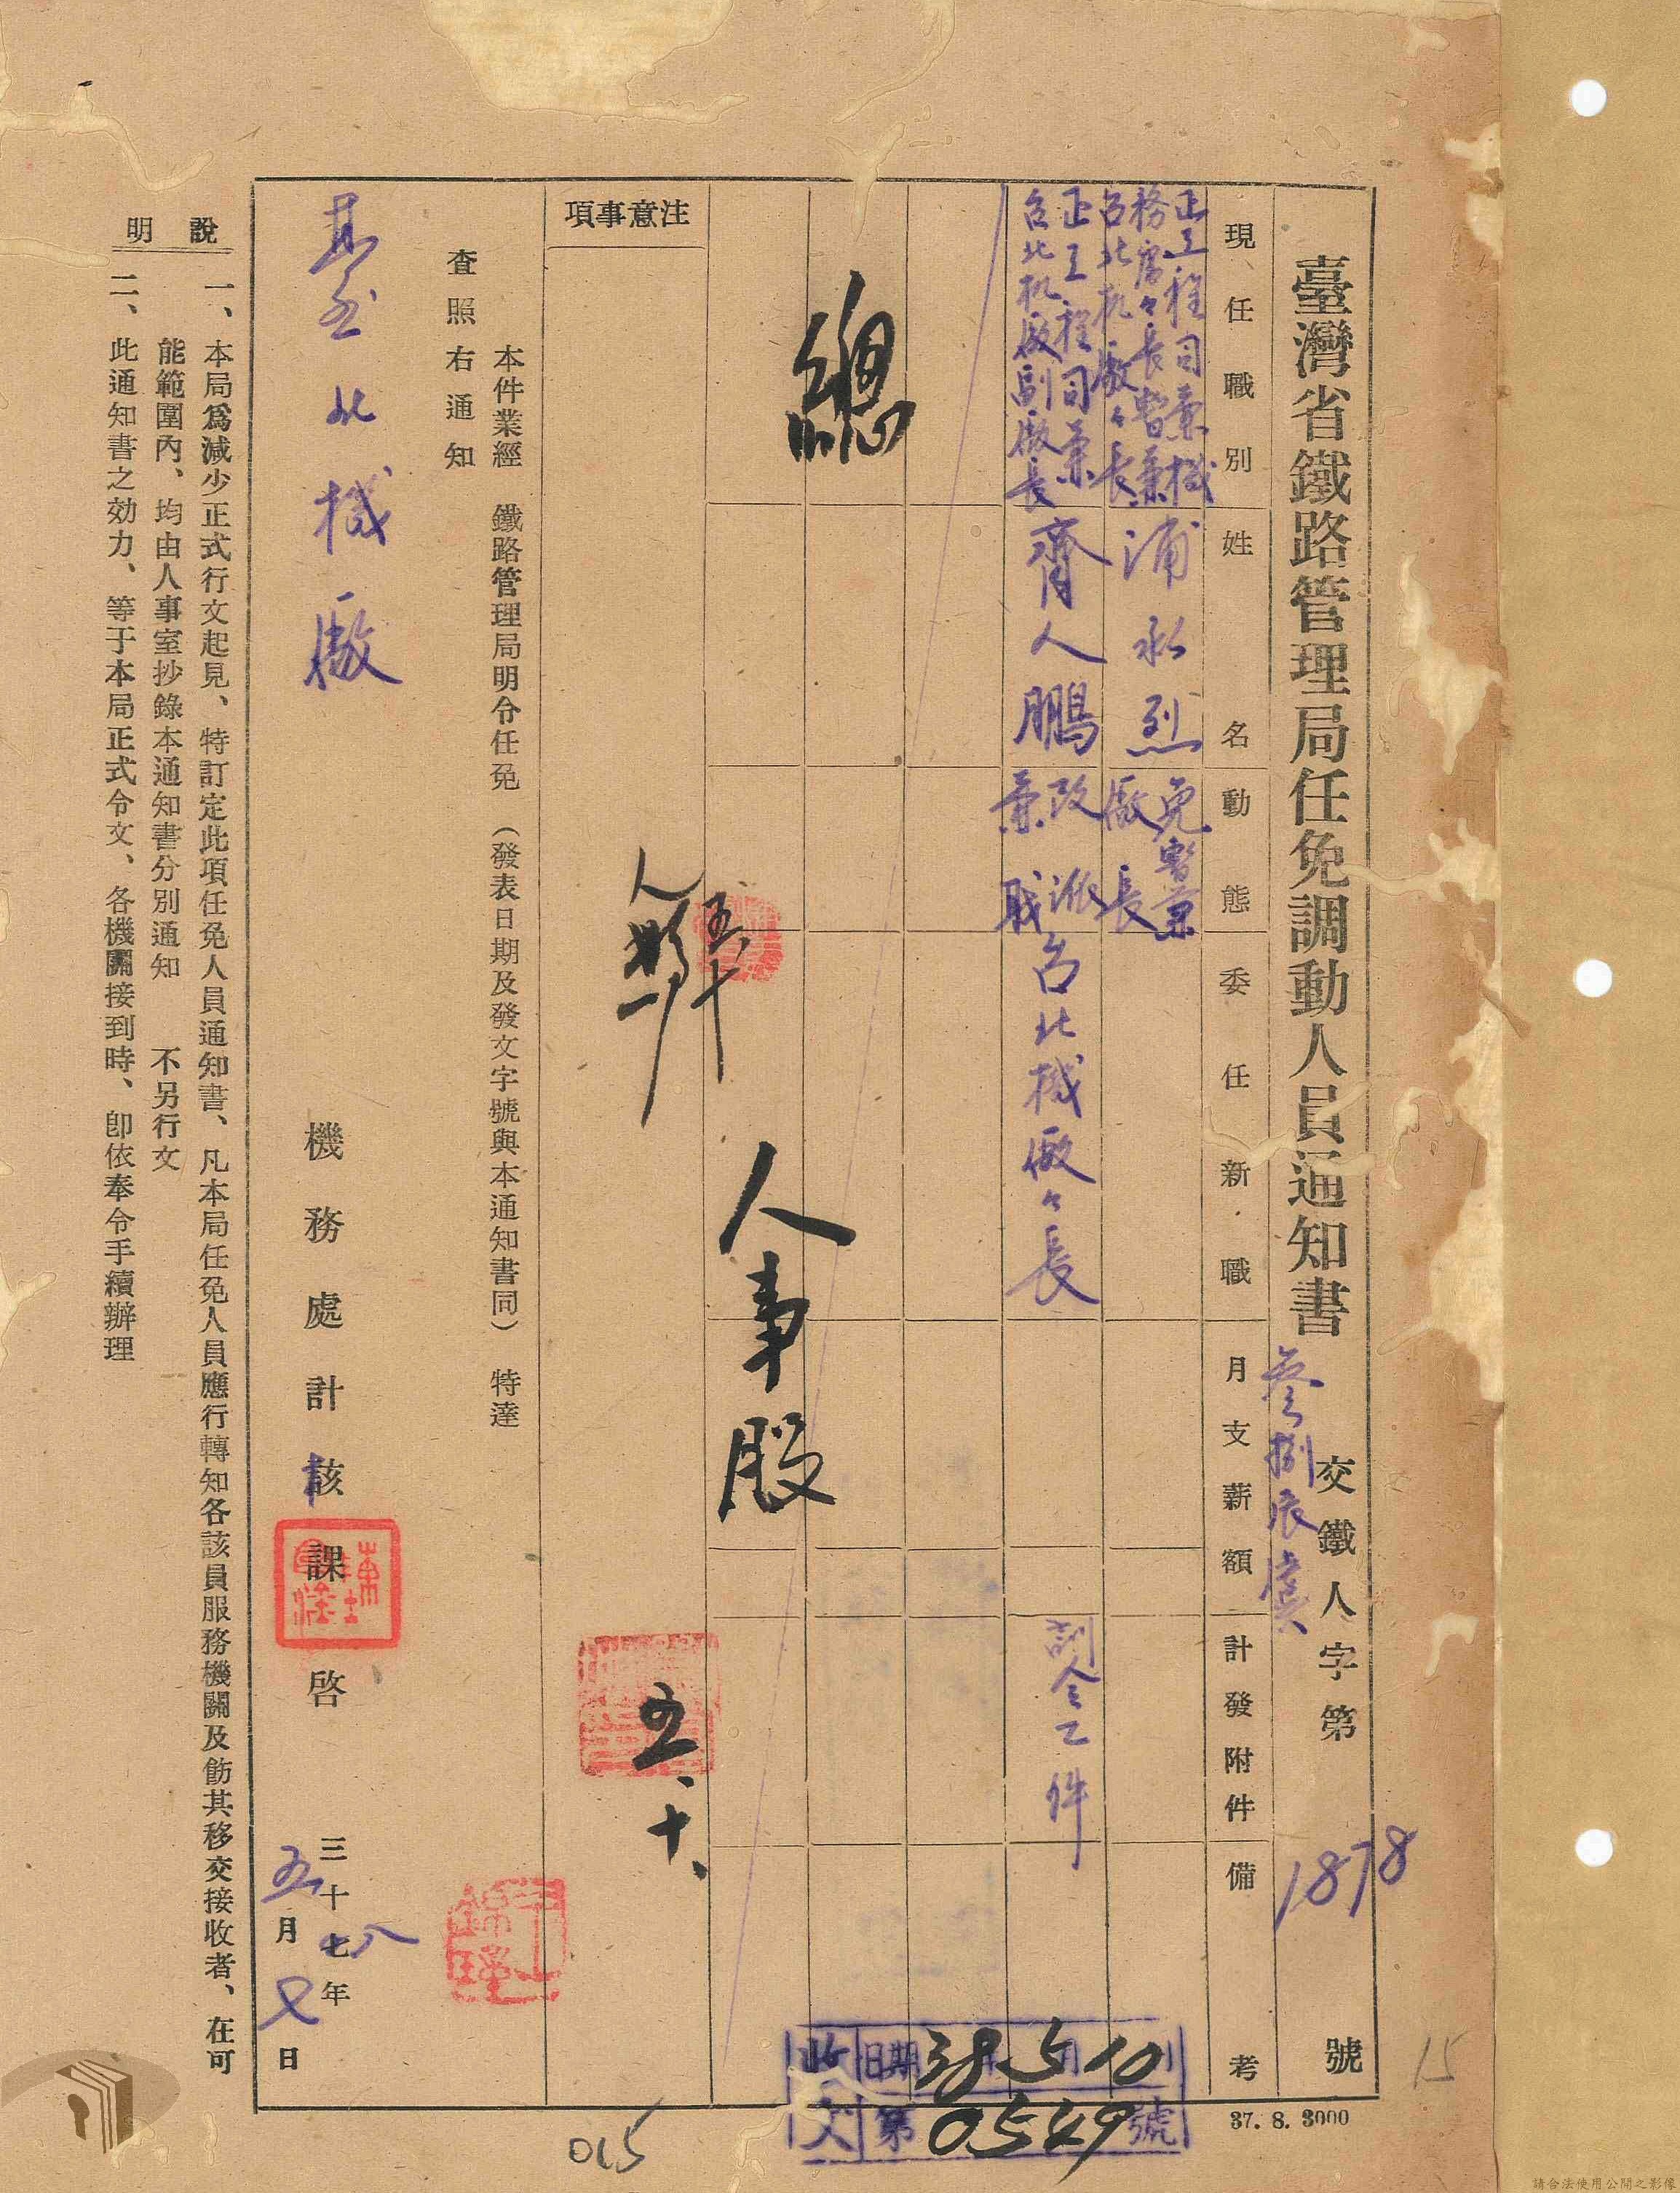 臺灣省鐵路管理局任免調動人員通知書
交鐵人字第 1878 號
叁捌辰虞
現任職別 姓名 動態 委任新職 月支薪額 計發附件 備考
正工程司兼機
務處々長暫兼
台北机廠々長
浦永烈
免暫兼
廠長
正工程司兼
台北机廠副廠長
齊人鵬
改派
兼職
台北機廠々長
訓令乙件
總
人事股
五、十、
注意事項
本件業經 鐵路管理局明令任免 (發表日期及發文字號與本通知書同) 特達
查照右通知
台北機廠
機務處計該課 啓
三十七八年
五月七日
說明
一、本局爲減少正式行文起見、特訂定此項任免人員通知書、凡本局任免人員應行轉知各該員服務機關及飭其移交接收者、在可
能範圍內、均由人事室抄錄本通知書分別通知 不另行文
二、此通知書之効力、等于本局正式令文、各機關接到時、卽依奉令手續辦理
收文
日期 38 5 10
第 0549 號
37. 8. 3000
15
015
請合法使用公開之影像